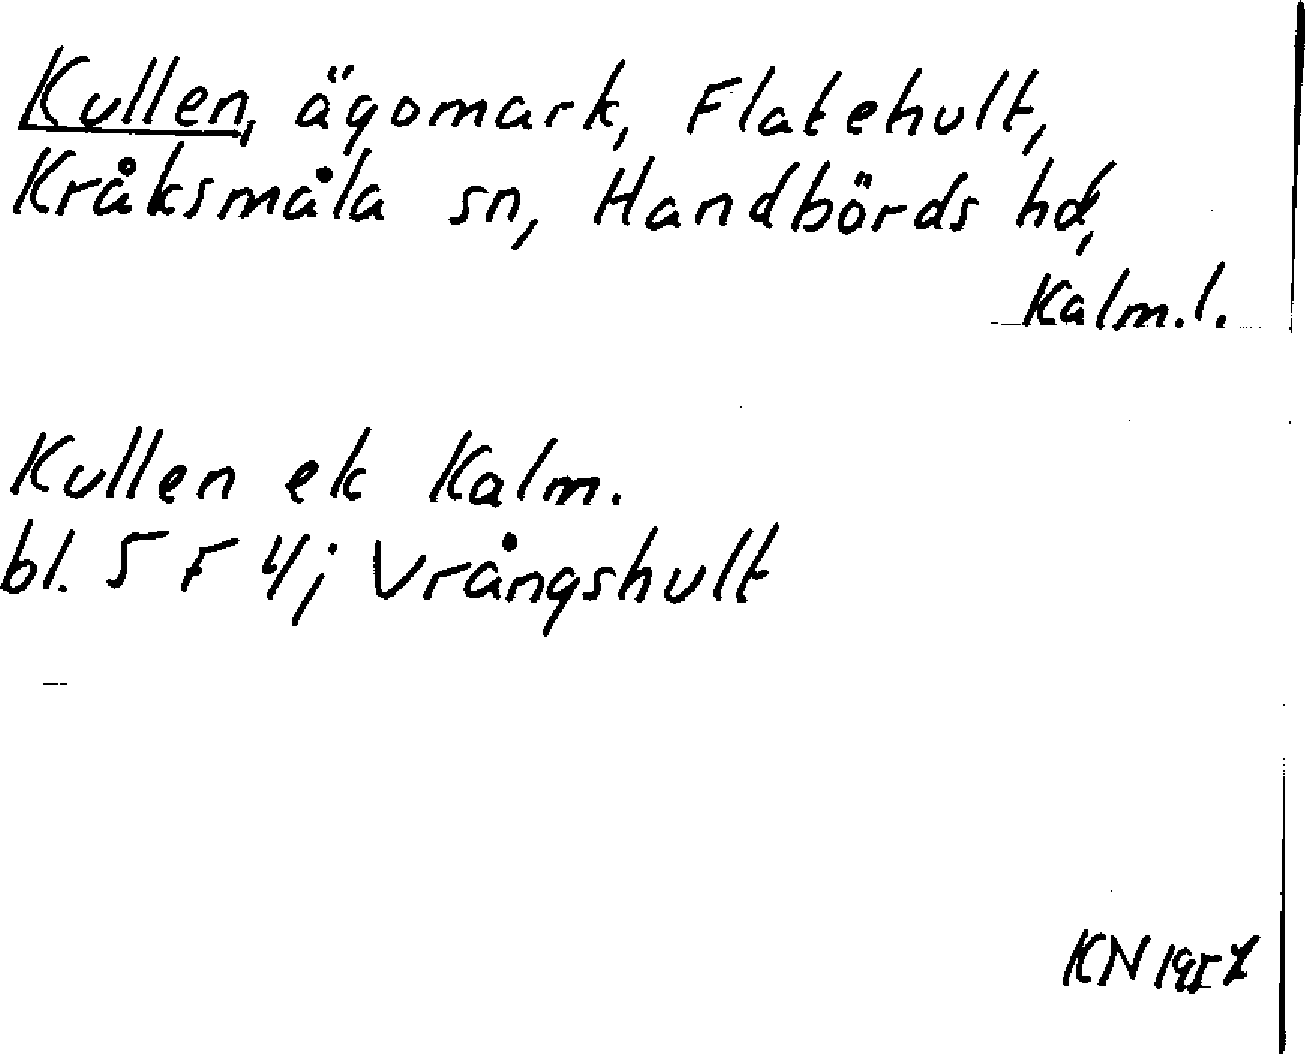 Kullen, ägomark, Flatehult,
Kråksmåla sn, Handbörds hd,
Kalm.l.
Kullen ek Kalm.
bl. 5 F 4j Vrångshult
KN 1957